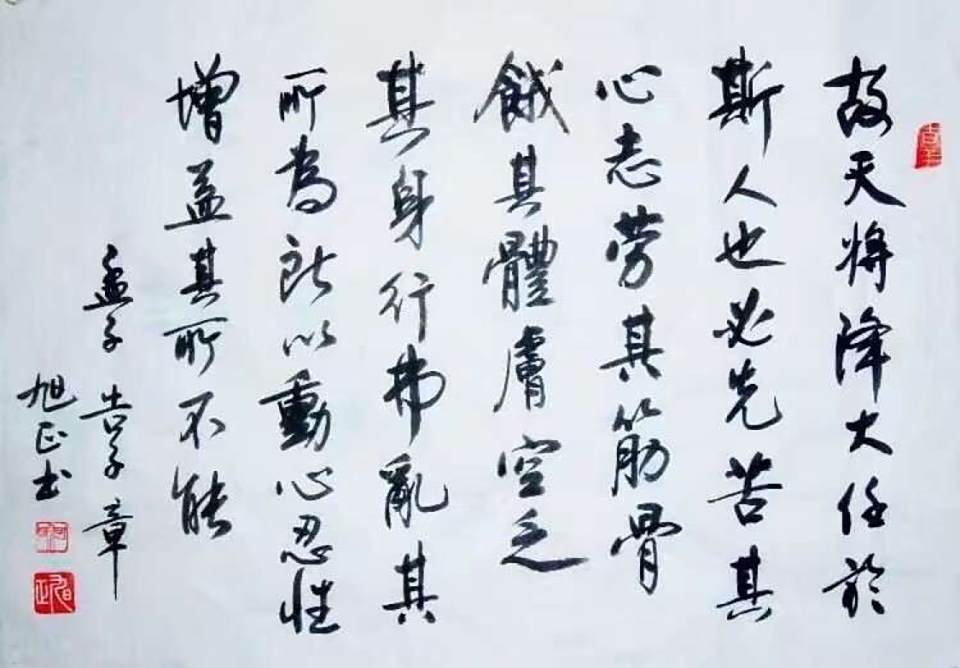 故天将降大任於
斯人也必先苦其
心志劳其筋骨
餓其體膚空乏
其身行拂亂其
所為所以動心忍性
增益其所不能
孟子告子章
旭正书